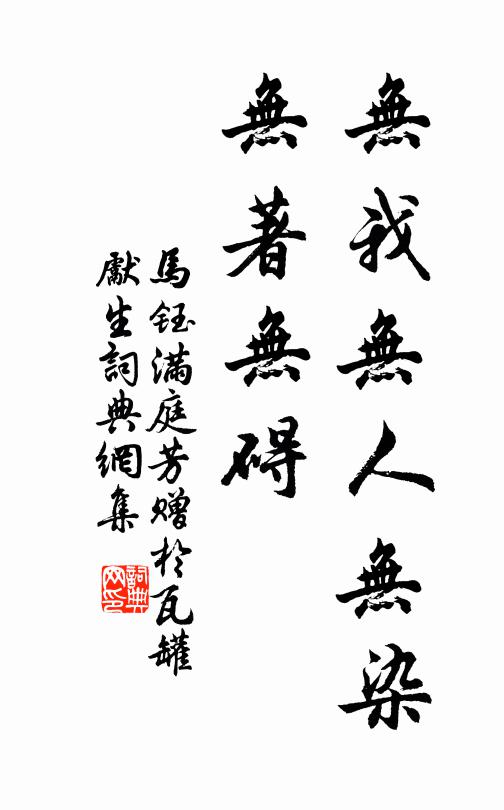 無我無人無染
無著無碍
馬鈺滿庭芳贈於瓦罐
獻生詞典網集
詞典
网印